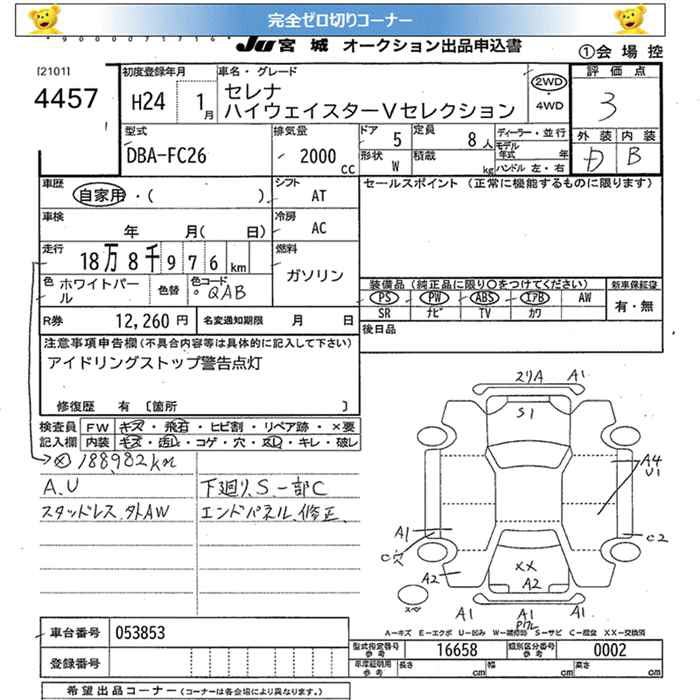 完全ゼロ切りコーナー
JU宮城 オークション出品申込書
①会場控
[2101]
4457
初度登録年月
H24 1月
車名・グレード
セレナ
ハイウェイスターVセレクション
2WD
・
4WD
評価点
3
外装 内装
D B
型式
DBA-FC26
排気量
2000 cc
ドア 5
定員 8人
形状 W
積載 kg
ディーラー・並行
モデル年式 年
ハンドル 左・右
車歴
自家用・( )
シフト
AT
セールスポイント (正常に機能するものに限ります)
車検
年 月( 日)
冷房
AC
走行
18万8千976km
燃料
ガソリン
色
ホワイトパール
色替
色コード
QAB
装備品 (純正品に限り○をつけてください)
新車保証書
PS PW ABS エアB AW
SR ナビ TV カワ
有・無
R券 12,260円
名変通知期限 月 日
後日品
注意事項申告欄(不具合内容等は具体的に記入して下さい)
アイドリングストップ警告点灯
修復歴 有 〔箇所 〕
検査員記入欄
FW キズ・飛石・ヒビ割・リペア跡・×要
内装 キズ・汚れ・コゲ・穴・スレ・キレ・破レ
188982km
A.U
下廻り、S.一部C
スタッドレス、外AW
エンドパネル、修正
A1
S1
A4
U1
A1
C穴
C2
A2
XX
A2
スペア
A1 A1 A1
A-キズ E-エクボ U-凹み W-補修跡 S-サビ C-腐食 XX-交換済
車台番号 053853
登録番号
型式指定番号 参考 16658
類別区分番号 参考 0002
年度証明用 参考
長さ cm 幅 cm 高さ cm
希望出品コーナー (コーナーは各会場により異なります。)